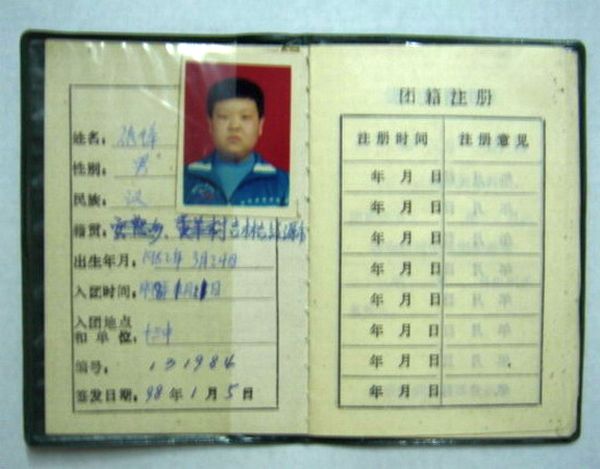 姓名:
性别: 男
民族: 汉
籍贯:
出生年月: 1982年3月24日
入团时间:
入团地点
和 单 位:
编号: 131984
签发日期: 98年1月5日
团籍注册
注册时间 注册意见
年 月 日
年 月 日
年 月 日
年 月 日
年 月 日
年 月 日
年 月 日
年 月 日